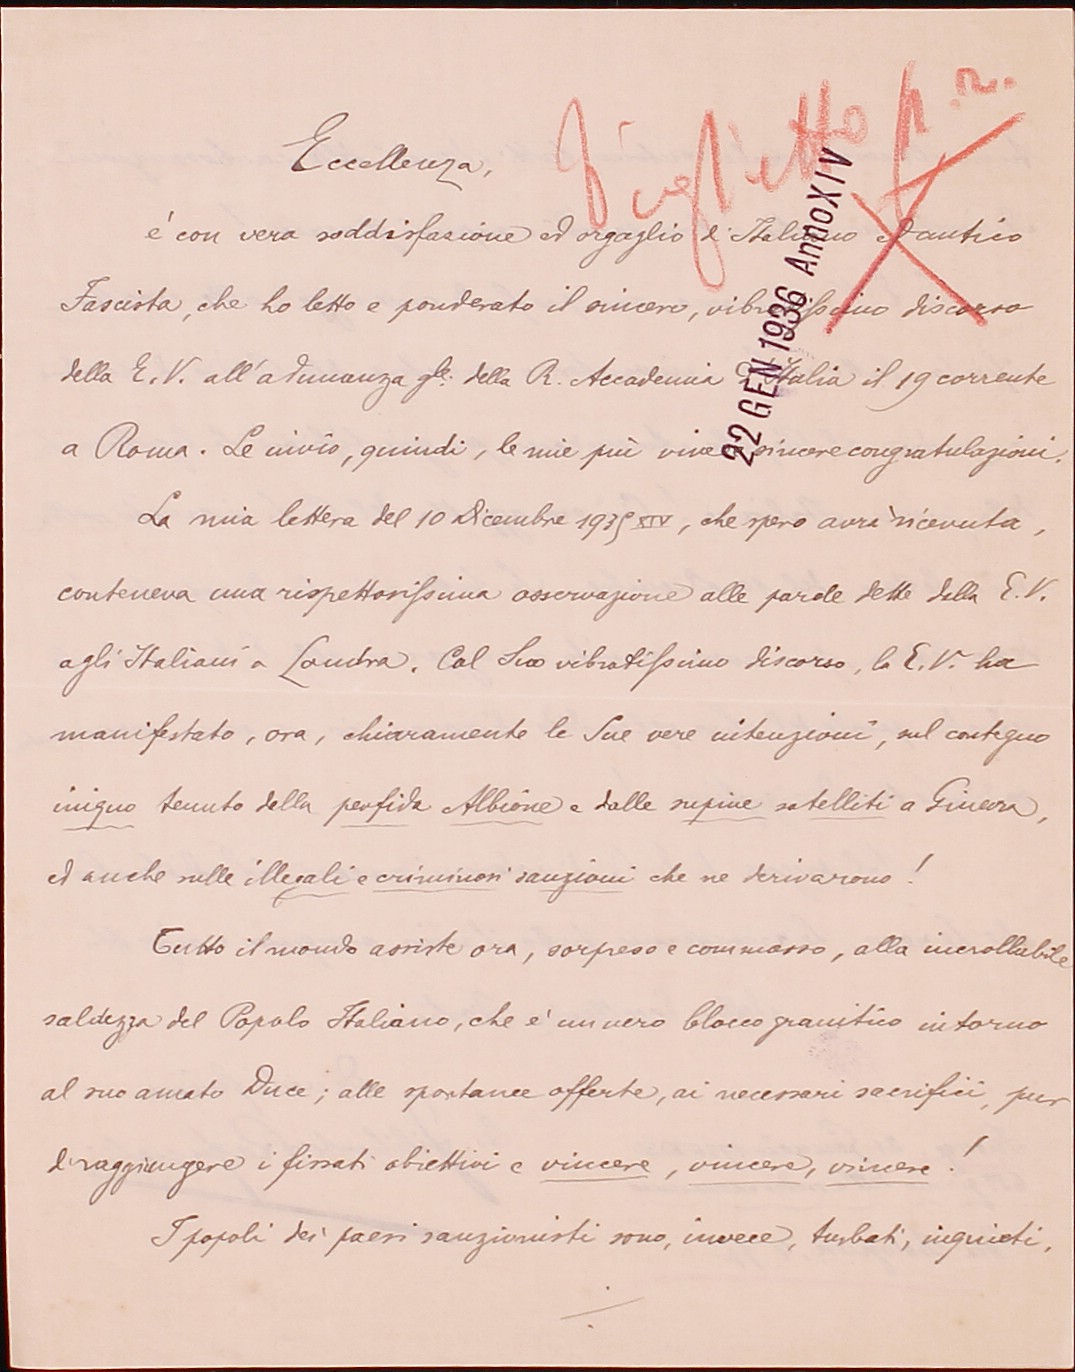 Biglietto p.r.
Eccellenza,
22 GEN 1936 Anno XIV
è con vera soddisfazione ed orgoglio d'Italiano ed antico
Fascista, che ho letto e ponderato il sincero, vibratissimo discorso
della E.V. all'adunanza gle. della R. Accademia d'Italia il 19 corrente
a Roma. Le invio, quindi, le mie più vive e sincere congratulazioni.
La mia lettera del 10 Dicembre 1935 XIV, che spero avrà ricevuta,
conteneva una rispettosissima osservazione alle parole dette dalla E.V.
agli Italiani a Londra. Col Suo vibratissimo discorso, la E.V. ha
manifestato, ora, chiaramente le Sue vere intenzioni, sul contegno
iniquo tenuto dalla perfida Albione e dalle supine satelliti a Ginevra,
ed anche sulle illegali e criminosi sanzioni che ne derivarono!
Tutto il mondo assiste ora, sorpreso e commosso, alla incrollabile
saldezza del Popolo Italiano, che è un vero blocco granitico intorno
al suo amato Duce; alle spontanee offerte, ai necessari sacrifici, pur
di raggiungere i fissati obiettivi e vincere, vincere, vincere!
I popoli dei paesi sanzionisti sono, invece, turbati, inquieti,